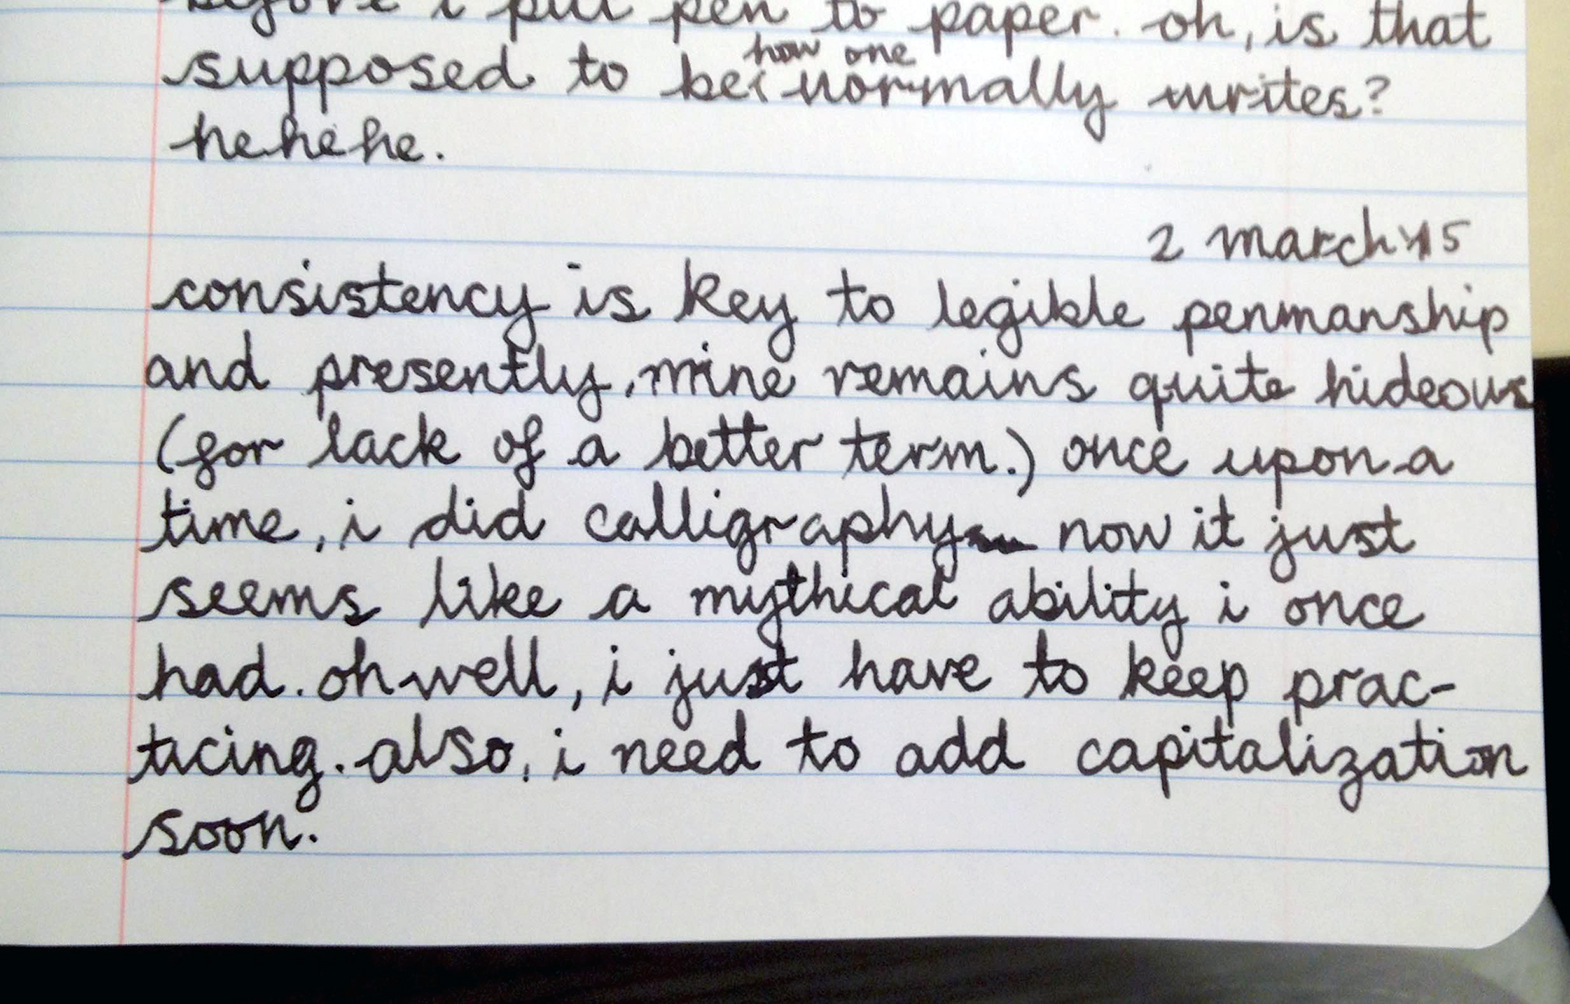 before i put pen to paper. oh, is that
how one
supposed to be normally writes?
hehehe.
2 march '15
consistency is key to legible penmanship
and presently, mine remains quite hideous
(for lack of a better term.) once upon a
time, i did calligraphy now it just
seems like a mythical ability i once
had. oh well, i just have to keep prac-
ticing. also, i need to add capitalization
soon.